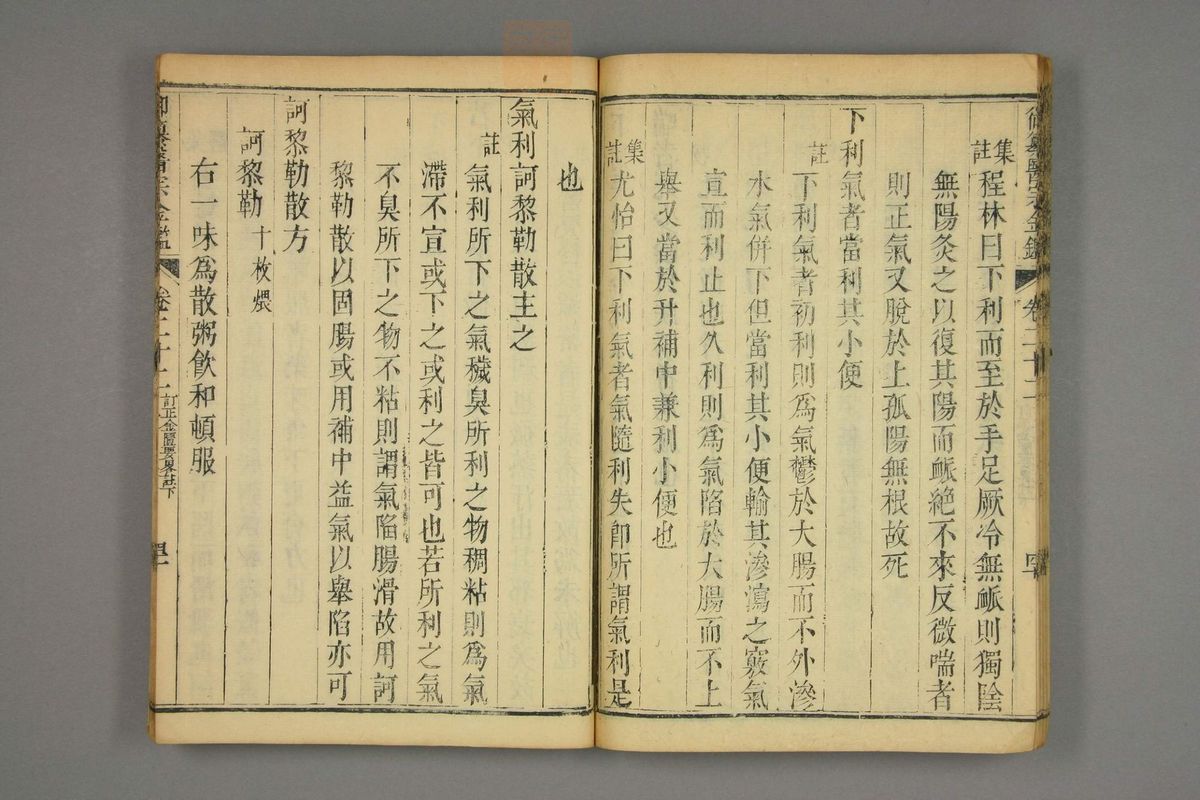 御纂醫宗金鑑 卷二十二
集註程林曰下利而至於手足厥冷無脈則獨陰
無陽灸之以復其陽而脈絕不來反微喘者
則正氣又脫於上孤陽無根故死
下利氣者當利其小便
註下利氣者初利則爲氣鬱於大腸而不外滲
水氣併下但當利其小便輸其滲瀉之竅氣
宣而利止也久利則爲氣陷於大腸而不上
舉又當於升補中兼利小便也
集註尤怡曰下利氣者氣隨利失卽所謂氣利是
也
氣利訶黎勒散主之
註氣利所下之氣穢臭所利之物稠粘則爲氣
滯不宣或下之或利之皆可也若所利之氣
不臭所下之物不粘則謂氣陷腸滑故用訶
黎勒散以固腸或用補中益氣以舉陷亦可
訶黎勒散方
訶黎勒十枚煨
右一味爲散粥飲和頓服
御纂醫宗金鑑 卷二十二 訂正金匱要畧註下